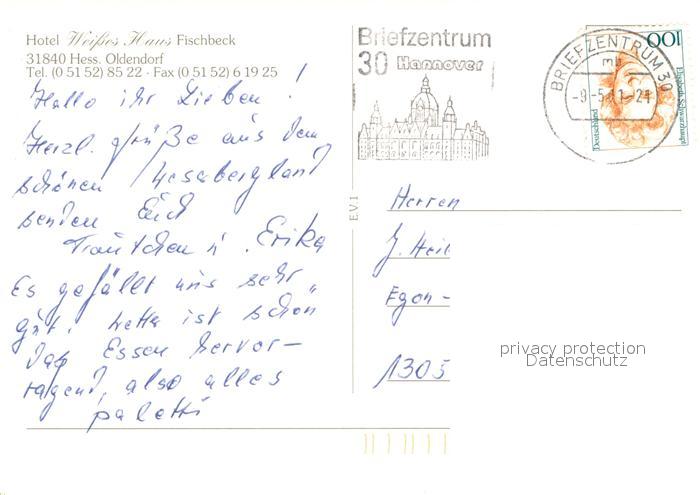 Hotel Weißes Haus Fischbeck
31840 Hess. Oldendorf
Tel. (0 51 52) 85 22 · Fax (0 51 52) 6 19 25
Hallo ihr Lieben !
Herzl. Grüße aus dem
schönen Weserbergland
senden Euch
Trautchen u. Erika
Es gefällt uns sehr
gut. Wetter ist schön
das Essen hervor-
ragend, also alles
paletti
E.V.1
Briefzentrum
30 Hannover
BRIEFZENTRUM 30
mb
100
Deutschland
Elisabeth Schwarzhaupt
Herren
J. Heil
Egon-
1305
privacy protection
Datenschutz